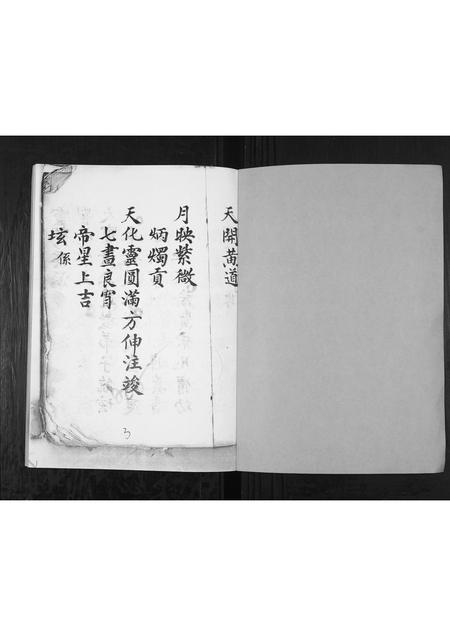 天開黄道
月映紫微
炳燭貢
天化靈圓滿方伸注竣
七晝良宵
帝星上吉
坛係
3